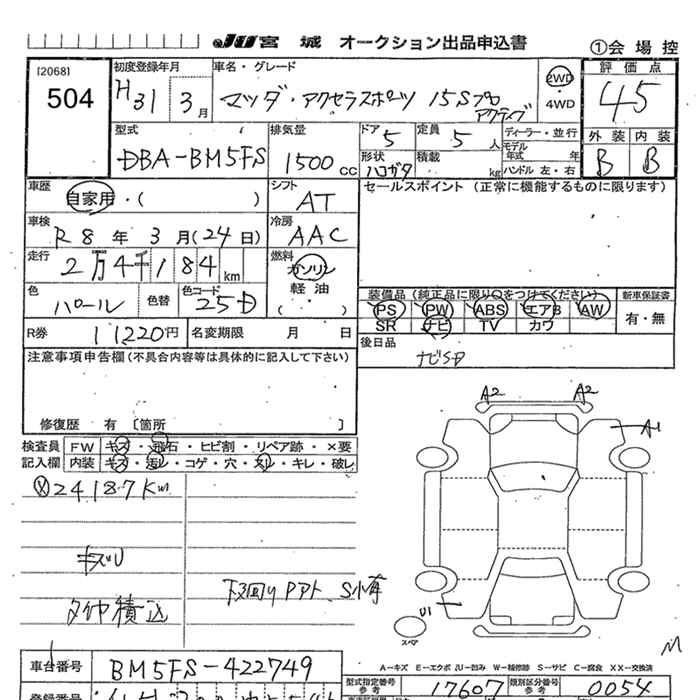 JU 宮 城 オークション出品申込書
①会 場 控
[2068]
504
初度登録年月
H31 3月
車名・グレード
マツダ・アクセラスポーツ 15Sプロアクティブ
2WD
・4WD
評 価 点
4 5
型式
DBA-BM5FS
排気量
1500 cc
ドア 5
定員 5 人
形状 ハコガタ
積載 kg
ディーラー・並行
モデル年式 年
ハンドル 左・右
外 装 内 装
B B
車歴
自家用・( )
シフト
AT
セールスポイント (正常に機能するものに限ります)
車検
R 8 年 3 月 (24 日)
冷房
AAC
走行
2万4千184 km
燃料
ガソリン
軽 油
( ・ )
色
パール
色替
色コード
25D
装備品(純正品に限り○をつけてください)
新車保証書
PS PW ABS エアB AW
有・無
SR ナビ TV カワ
R券 11220円
名変期限 月 日
後日品
ナビSD
注意事項申告欄(不具合内容等は具体的に記入して下さい)
修復歴 有 〔箇所 〕
検査員
記入欄
FW キズ・飛石・ヒビ割・リペア跡・×要
内装 キズ・汚レ・コゲ・穴・スレ・キレ・破レ
24187Km
キズU
下回りPアト、S小有
タイヤ積込
A2 A2
A1
U1
スペア
A−キズ E−エクボ U−凹み W−補修跡 S−サビ C−腐食 XX−交換済
車台番号
BM5FS-422749
型式指定番号
参考
17607
類別区分番号
参考
0054
登録番号